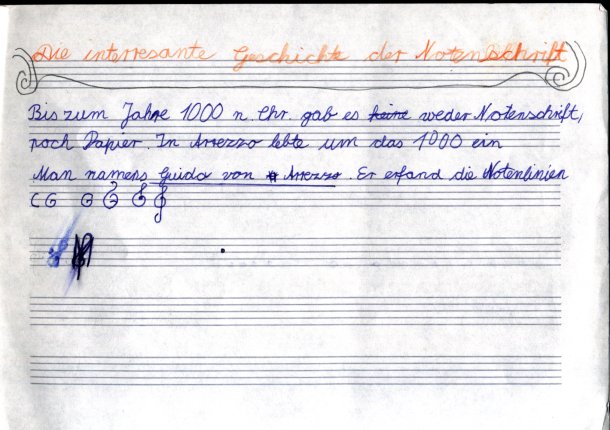 Die interresante Geschichte der Notenschrift
Bis zum Jahre 1000 n. Chr. gab es keine weder Notenschrift,
noch Papier. In Arrezzo lebte um das 1000 ein
Man namens Guido von Arrezzo. Er erfand die Notenlinien
C G G G